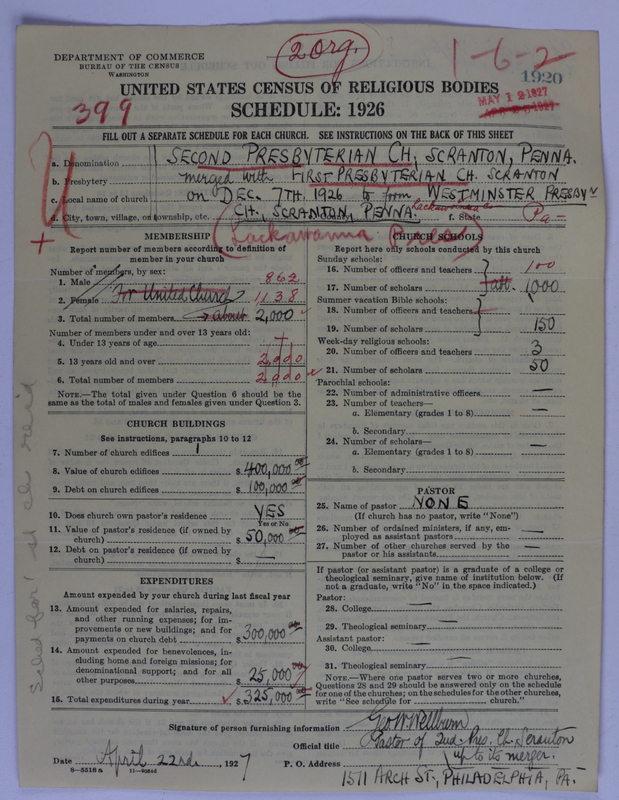 2 org.
1-6-2
DEPARTMENT OF COMMERCE
BUREAU OF THE CENSUS
WASHINGTON
1920
UNITED STATES CENSUS OF RELIGIOUS BODIES
MAY 12 1927
399
SCHEDULE: 1926
FILL OUT A SEPARATE SCHEDULE FOR EACH CHURCH. SEE INSTRUCTIONS ON THE BACK OF THIS SHEET
a. Denomination SECOND PRESBYTERIAN CH, SCRANTON, PENNA.
b. Presbytery merged with FIRST PRESBYTERIAN CH. SCRANTON
c. Local name of church on DEC. 7TH. 1926 to form WESTMINSTER PRESBYN
d. City, town, village, or township, etc. CH., SCRANTON, PENNA. Lackawanna Co f. State Pa-
(Lackawanna Presb)
MEMBERSHIP
Report number of members according to definition of
member in your church
Number of members, by sex:
1. Male 862
2. Female For United Church 1138
3. Total number of members about 2,000
Number of members under and over 13 years old:
4. Under 13 years of age
5. 13 years old and over 2,000
6. Total number of members 2000
NOTE.—The total given under Question 6 should be
same as the total of males and females given under Question 3.
CHURCH BUILDINGS
See instructions, paragraphs 10 to 12
7. Number of church edifices 1
8. Value of church edifices $400,000 00
9. Debt on church edifices $100,000 00
10. Does church own pastor's residence YES
Yes or No
11. Value of pastor's residence (if owned by
church) $50,000 00
12. Debt on pastor's residence (if owned by
church) $ —
EXPENDITURES
Amount expended by your church during last fiscal year
13. Amount expended for salaries, repairs,
and other running expenses; for im-
provements or new buildings; and for
payments on church debt $300,000 00
14. Amount expended for benevolences, in-
cluding home and foreign missions; for
denominational support; and for all
other purposes $25,000
15. Total expenditures during year $325,000 00
CHURCH SCHOOLS
Report here only schools conducted by this church
Sunday schools:
16. Number of officers and teachers 100
17. Number of scholars 1000
Summer vacation Bible schools:
18. Number of officers and teachers
19. Number of scholars 150
Week-day religious schools:
20. Number of officers and teachers 3
21. Number of scholars 50
Parochial schools:
22. Number of administrative officers —
23. Number of teachers—
a. Elementary (grades 1 to 8) —
b. Secondary
24. Number of scholars—
a. Elementary (grades 1 to 8) —
b. Secondary
PASTOR
25. Name of pastor NONE
(If church has no pastor, write "None")
26. Number of ordained ministers, if any, em-
ployed as assistant pastors —
27. Number of other churches served by the
pastor or his assistants —
If pastor (or assistant pastor) is a graduate of a college or
theological seminary, give name of institution below. (If
not a graduate, write "No" in the space indicated.)
Pastor:
28. College —
29. Theological seminary —
Assistant pastor:
30. College —
31. Theological seminary —
NOTE.—Where one pastor serves two or more churches,
Questions 28 and 29 should be answered only on the schedule
for one of the churches; on the schedules for the other churches,
write "See schedule for church."
Signature of person furnishing information Geo W Wellburn
Official title Pastor of 2nd. Pres. Ch. Scranton
up to its merger.
Date April 22nd., 1927 P. O. Address 1511 ARCH ST., PHILADELPHIA, PA.
8—5518 a